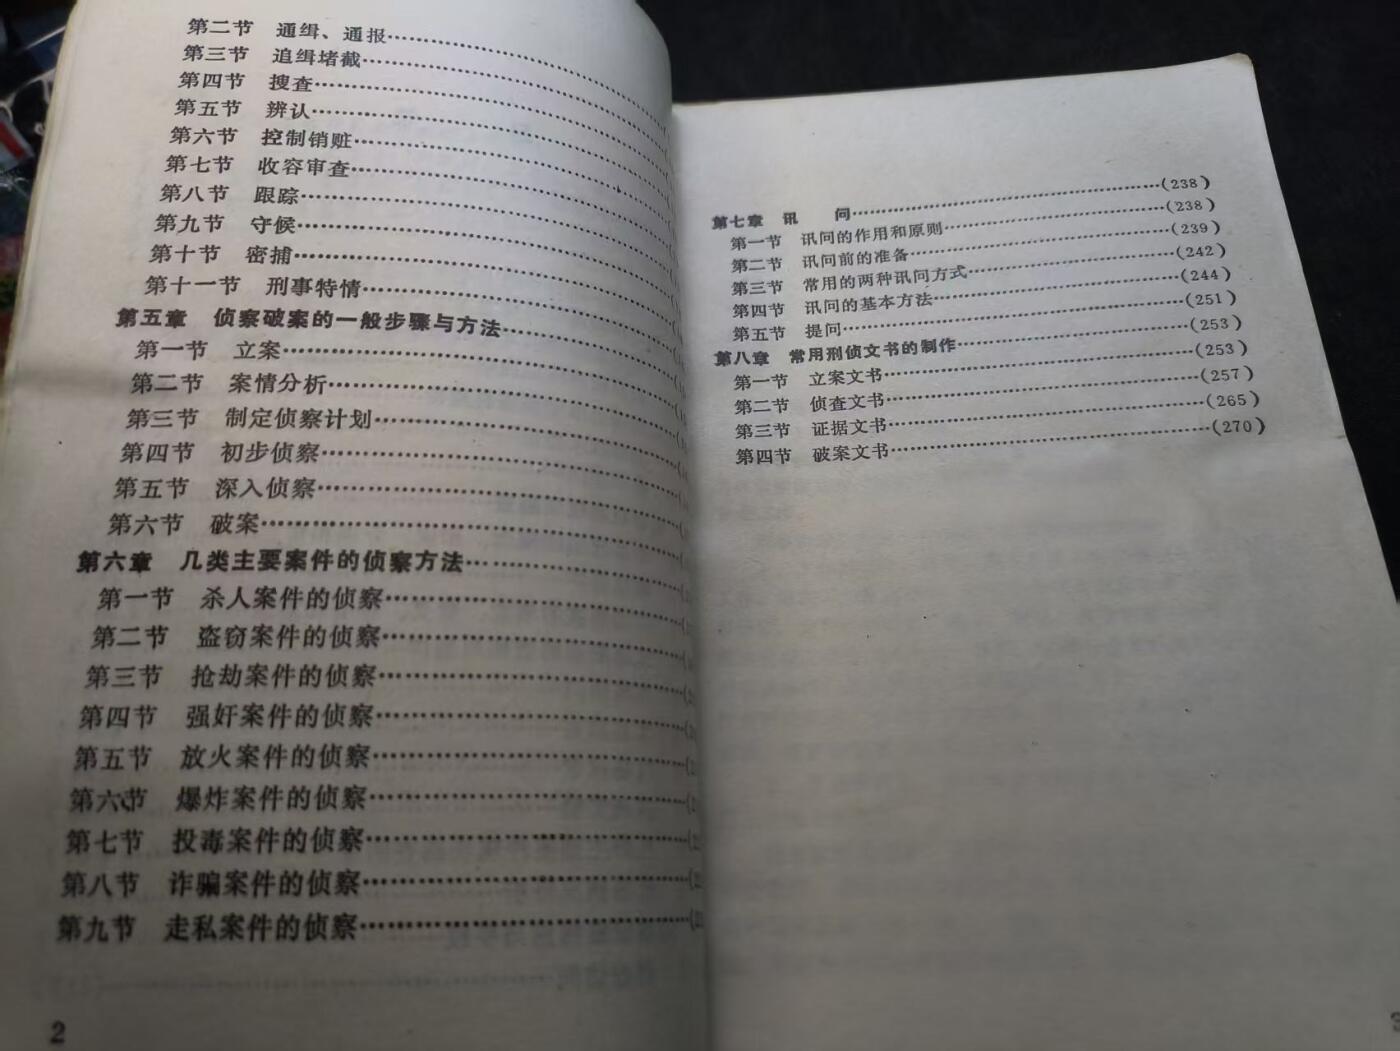 第二节 通缉、通报……
第三节 追缉堵截……
第四节 搜查……
第五节 辨认……
第六节 控制销赃……
第七节 收容审查……
第八节 跟踪……
第九节 守候……
第十节 密捕……
第十一节 刑事特情……
第五章 侦察破案的一般步骤与方法……
第一节 立案……
第二节 案情分析……
第三节 制定侦察计划……
第四节 初步侦察……
第五节 深入侦察……
第六节 破案……
第六章 几类主要案件的侦察方法……
第一节 杀人案件的侦察……
第二节 盗窃案件的侦察……
第三节 抢劫案件的侦察……
第四节 强奸案件的侦察……
第五节 放火案件的侦察……
第六节 爆炸案件的侦察……
第七节 投毒案件的侦察……
第八节 诈骗案件的侦察……
第九节 走私案件的侦察……
2
第七章 讯 问……(238)
第一节 讯问的作用和原则……(238)
第二节 讯问前的准备……(239)
第三节 常用的两种讯问方式……(242)
第四节 讯问的基本方法……(244)
第五节 提问……(251)
第八章 常用刑侦文书的制作……(253)
第一节 立案文书……(253)
第二节 侦查文书……(257)
第三节 证据文书……(265)
第四节 破案文书……(270)